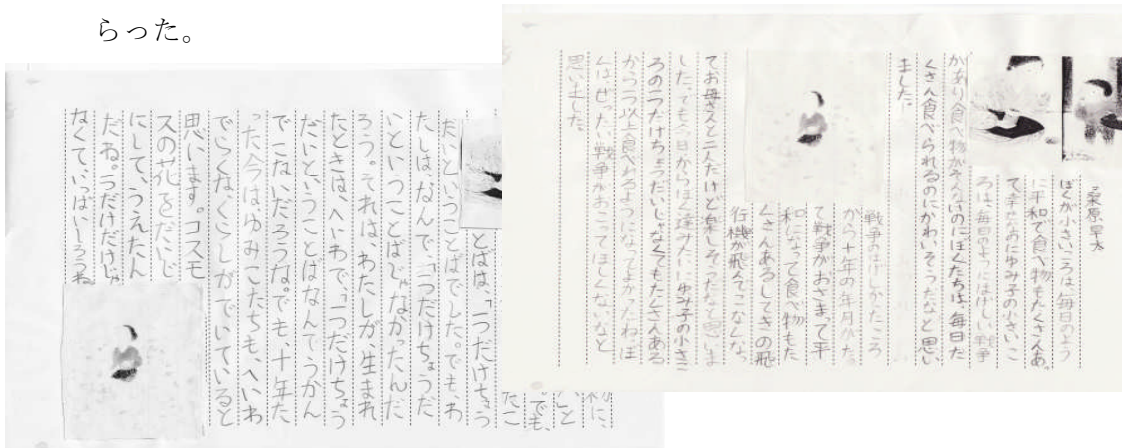 らった。
桑原早太
ぼくが小さいころは、毎日のよう
に平和で食べ物もたくさんあ
て幸せなのにゆみ子の小さいこ
ろは、毎日のようにはげしい戦争
があり食べ物がそんないのにぼくたちは、毎日た
くさん食べられるのにかわいそうだなと思い
ました。
戦争のはげしかたころ
から十年の年月がた
て戦争がおさまって平
和になって食べ物もた
くさんあるしてきの飛
行機が飛んでこなくなっ
てお母さんと二人だけど楽しそうだなと思いま
したっても今日からはぼく達みたいにゆみ子の小さこ
ろの一つだけちょうだいじゃなくてもたくさんある
から一つ以上食べれるようになってよかったねぼ
くはぜったい戦争がおこってほしくないなと
思いました。
とばは、「一つだけちょう
だいということばでした。でも、わ
たしはなんで、「一つだけちょうだ
いということばじゃなかったんだ
ろう。それは、わたしが、生まれ
たときは、へいわで、「一つだけちょう
だいということはなんてうかん
でこないだろうな。でも、十年た
った今はゆみこたちも、へいわ
でらくなくらしができていると
思います。コスモ
スの花をだいじ
にして、うえたん
だね。一つだけだけじゃ
なくていっぱい